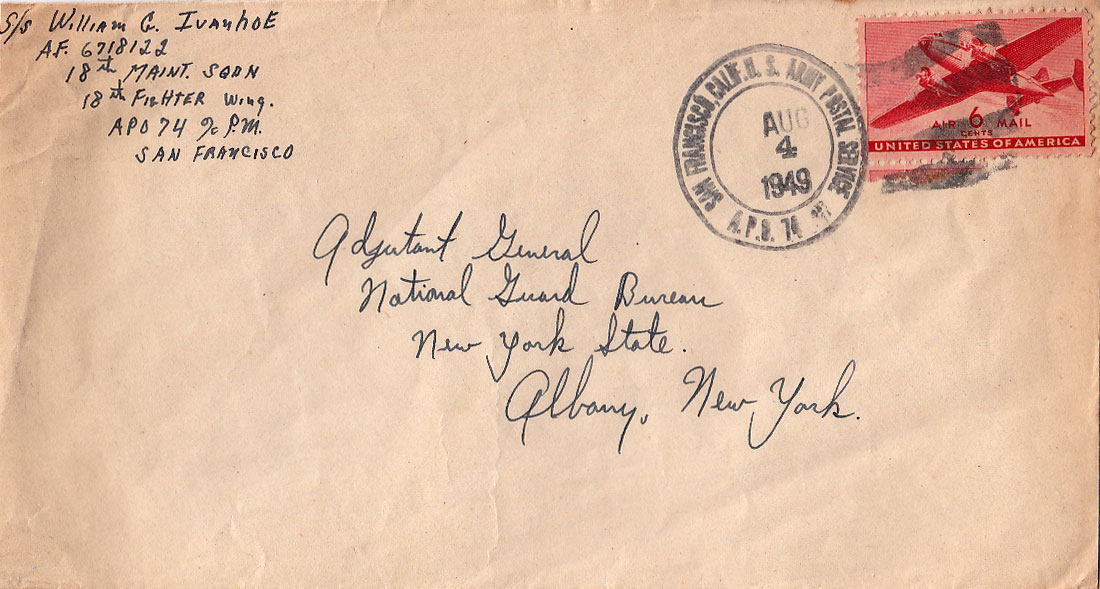 S/S William G. Ivanhoe
AF. 6718122
18th Maint. Sqdn
18th Fighter Wing.
APO 74 % P.M.
San Francisco
SAN FRANCISCO, CALIF. U. S. ARMY POSTAL SERVICE
AUG
4
1949
A.P.O. 74
AIR 6 MAIL
CENTS
UNITED STATES OF AMERICA
Adjutant General
National Guard Bureau
New York State.
Albany, New York.